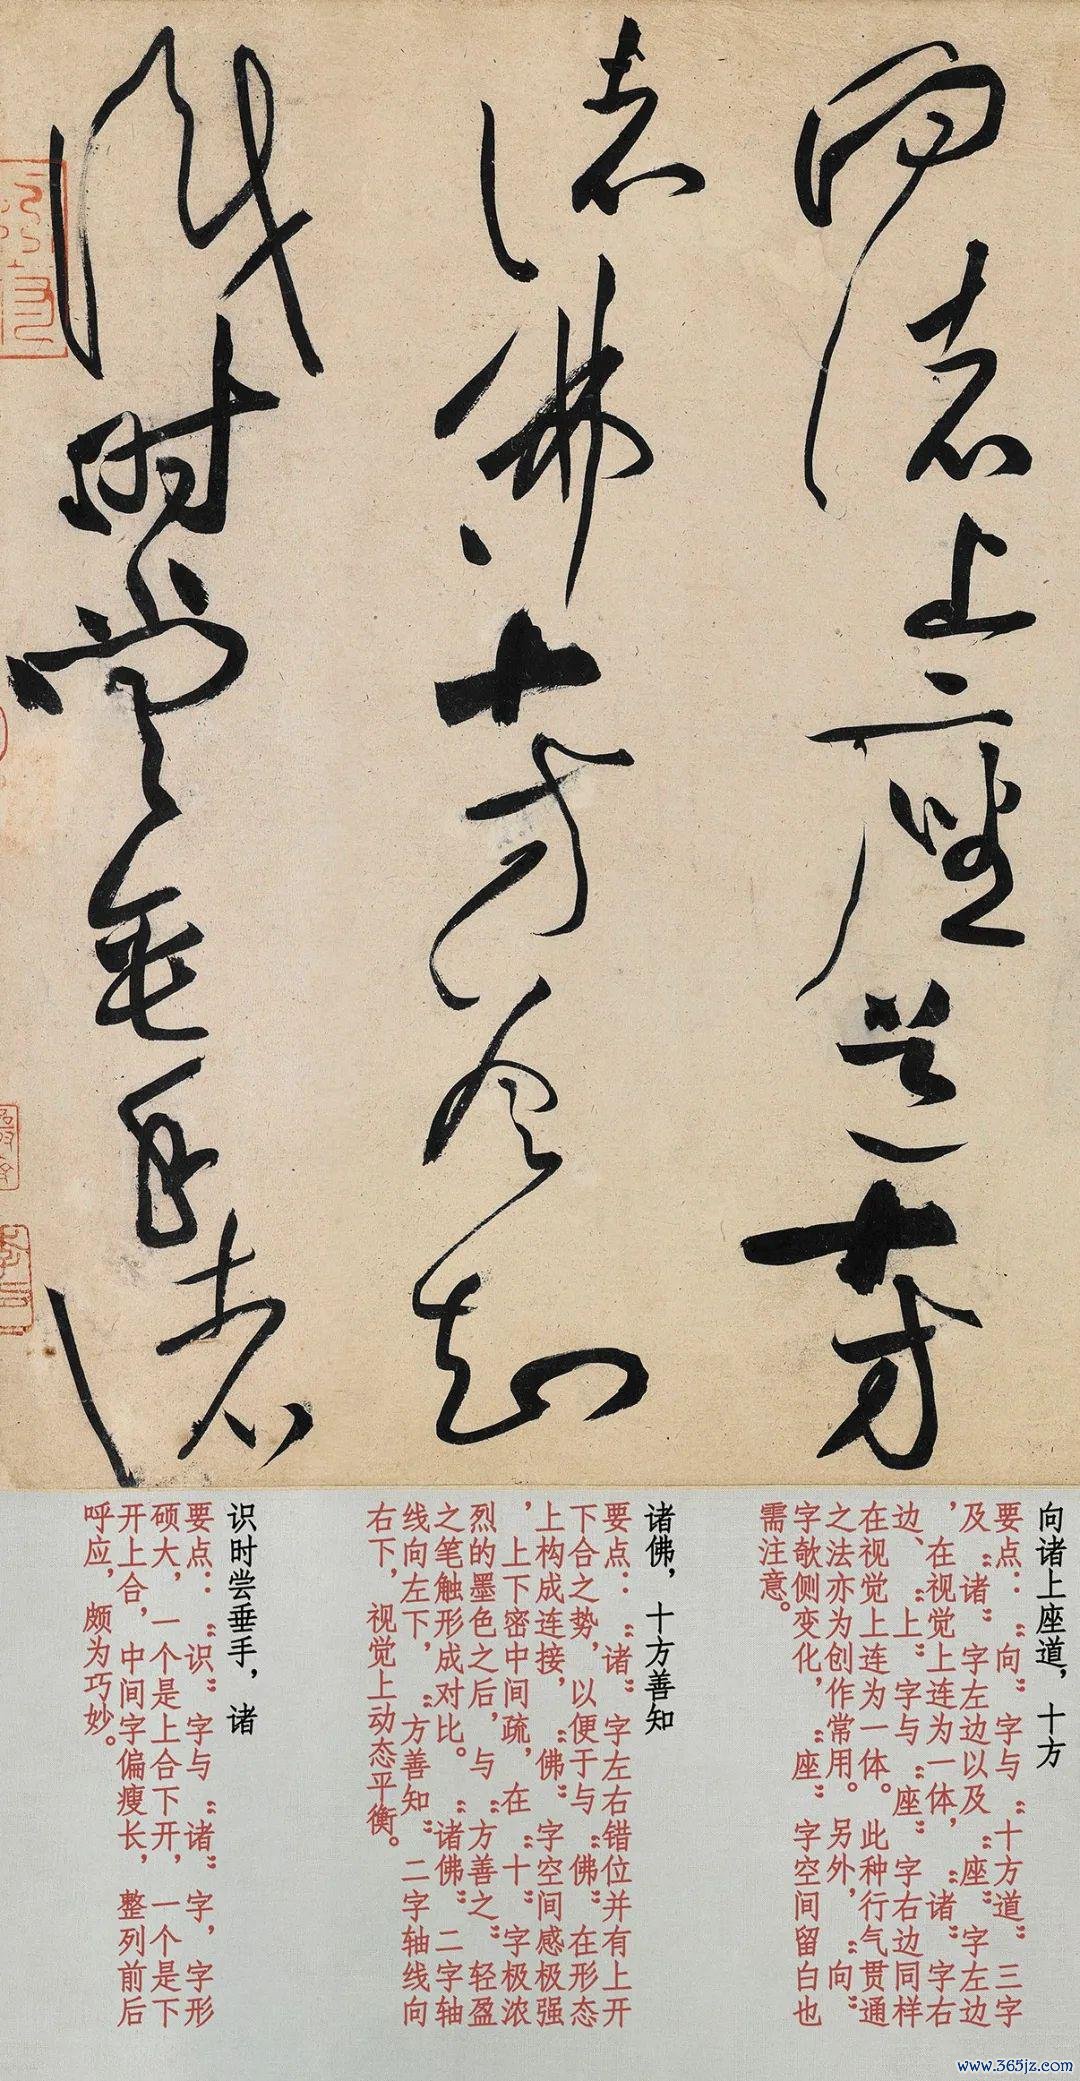 向诸上座道十方
诸佛十方善知
识时尝垂手诸
向诸上座道，十方
要点：“向”字与“十方道”三字
及“诸”字左边以及“座”字左边
，在视觉上连为一体，“诸”字右
边、“上”字与“座”字右边同样
在视觉上连为一体。此种行气贯通
之法亦为创作常用。另外，“向”
字欹侧变化，“座”字空间留白也
需注意。
诸佛，十方善知
要点：“诸”字左右错位并有上开
下合之势，以便于与“佛”在形态
上构成连接，“佛”字空间感极强
，上下密中间疏，在“十”字极浓
烈的墨色之后，与“方善之”轻盈
之笔触形成对比。“诸佛”二字轴
线向左下，“方善知”二字轴线向
右下，视觉上动态平衡。
识时尝垂手，诸
要点：“识”字与“诸”字，字形
硕大，一个是上合下开，一个是下
开上合，中间字偏瘦长，整列前后
呼应，颇为巧妙。
www.365jz.com